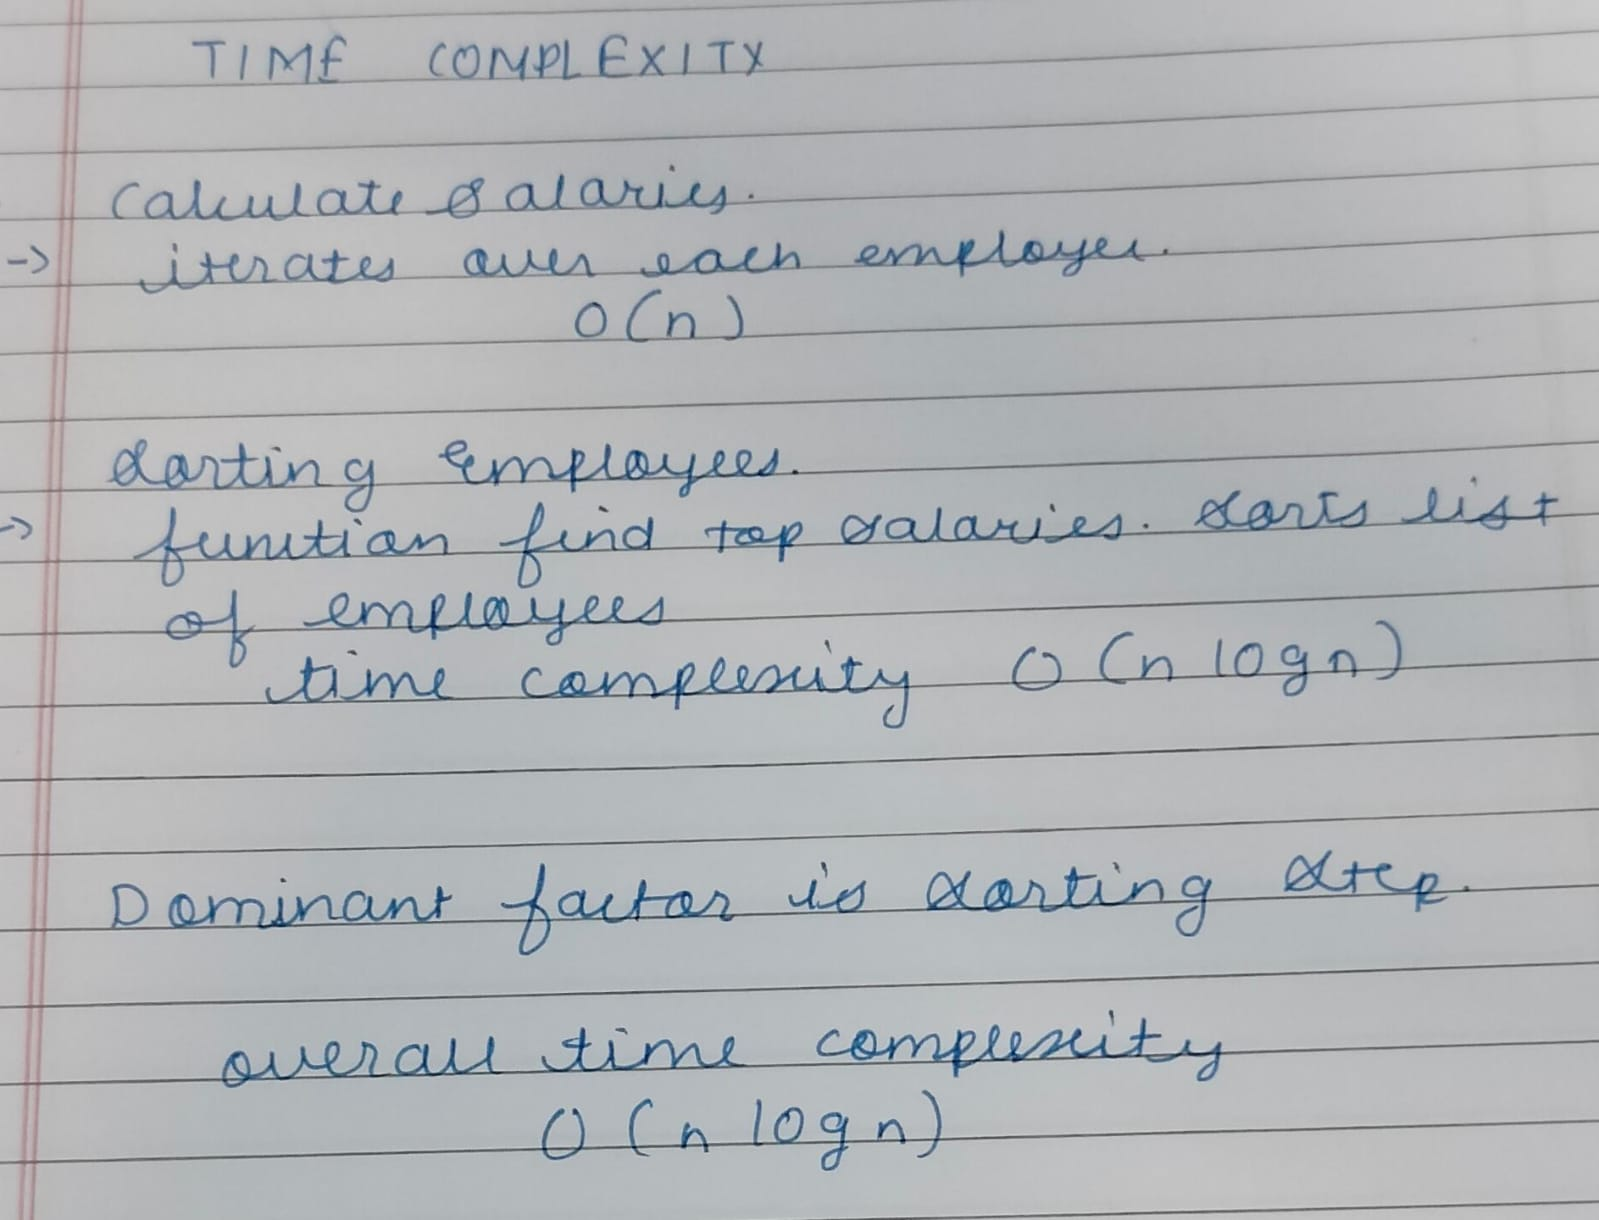 TIME COMPLEXITY
Calculate salaries.
-> iterates over each employee.
O(n)
sorting Employees.
-> function find top salaries. sorts list
of employees
time complexity O(n logn)
Dominant factor is sorting step.
overall time complexity
O(n logn)